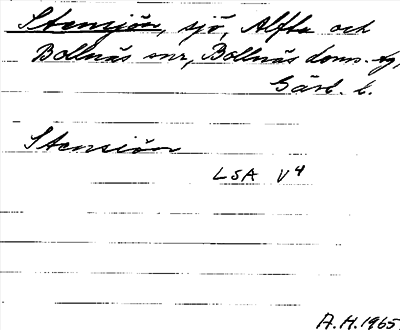 Stensjön, sjö, Alfta och
Bollnäs snr, Bollnäs doms.-tg,
Gävl. l.
Stensiön
LSA V4
A.H. 1965